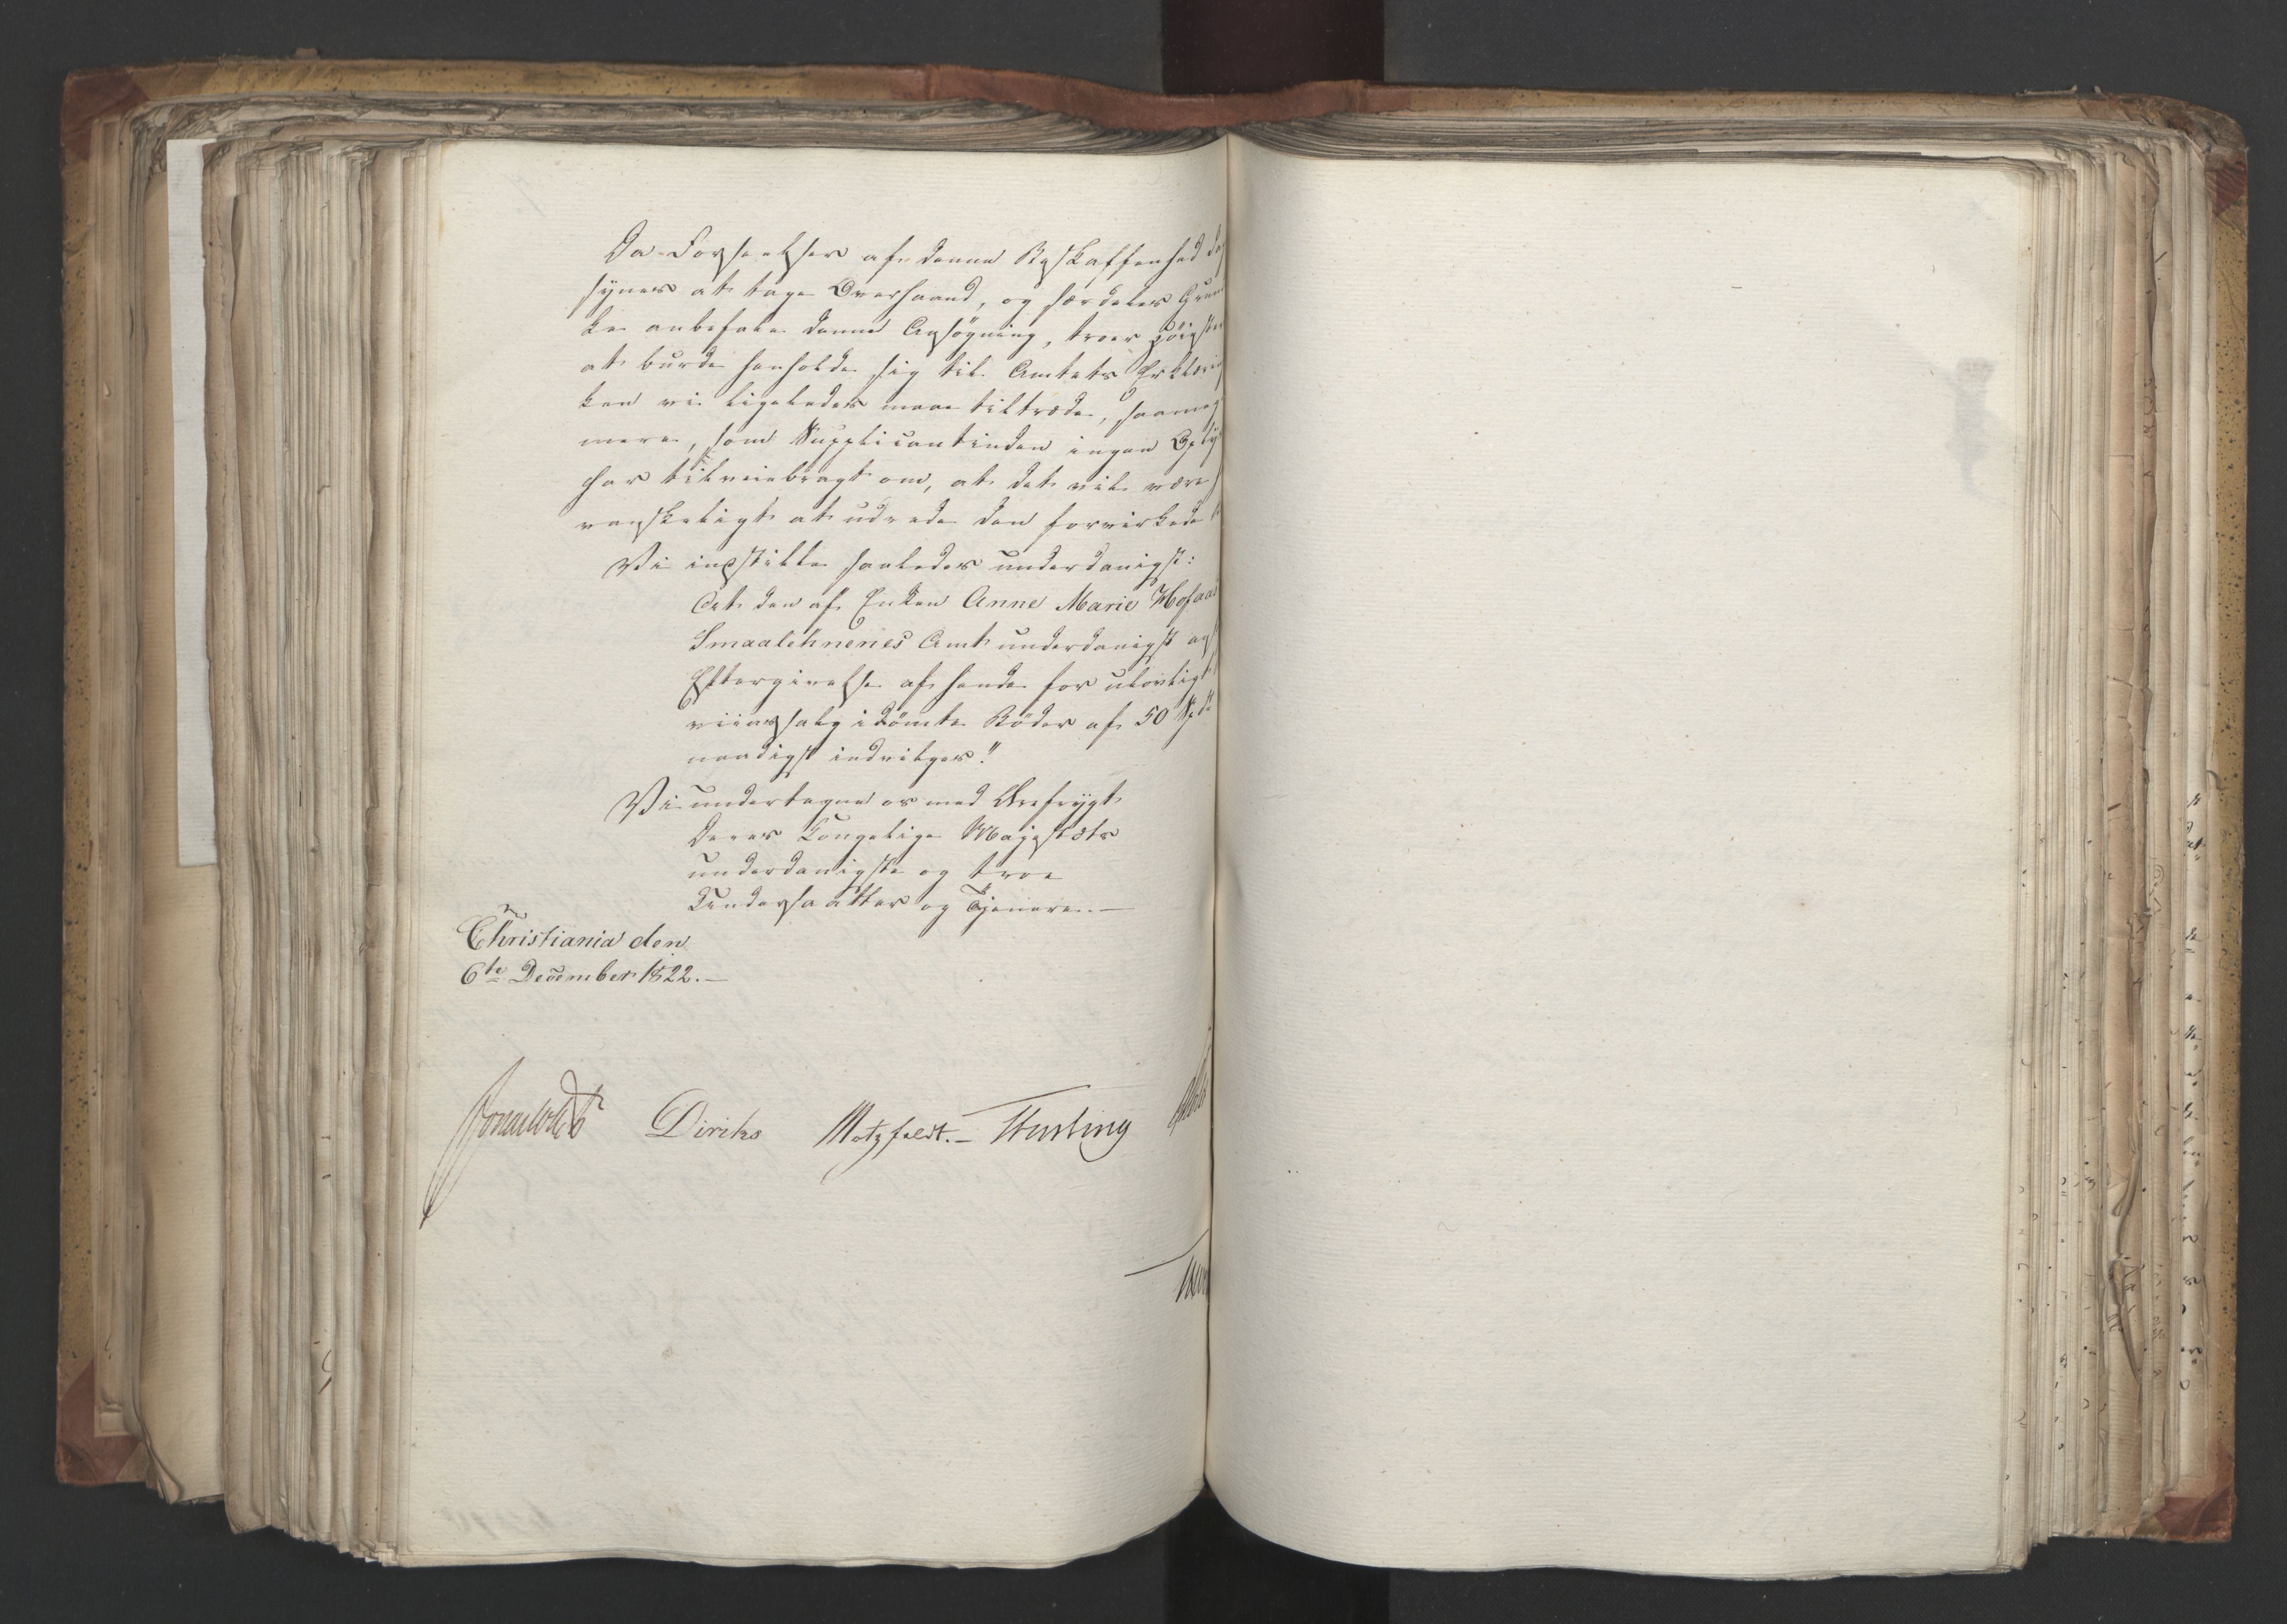 Da Forseelser af denne Beskaffenhed
synes at tage Overhaand, og særdeles
kan anbefale denne Ansøgning, troer
at burde henholde sig til Amtets
ken vi ligeledes maae tiltræde,
mere, som Supplicantinden ingen
har tilveiebragt om, at det vil være
vanskeligt at udrede den forvirkede
Vi indstille saaledes underdanigst:
At den af Enken Anne Marie
Smaalehnenes Amt underdanigst
Eftergivelse af hende for ulovligt
viinssalg idömte Böder af 50 Spd
naadigst indvilges!"
Vi undertegne os med Ærefrygt
Deres Kongelige Majestæts
underdanigste og troe
Undersaatter og Tjenere.—
Christiania den
6te December 1822.—
Diriks Motzfeldt.—